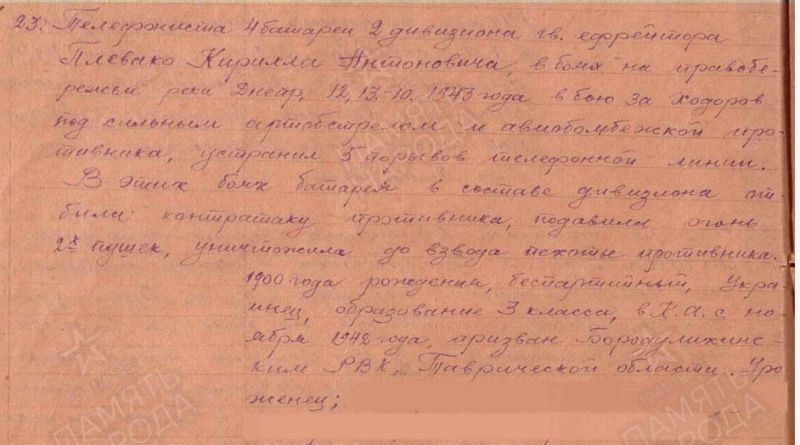 23. Телефониста 4 батареи 2 дивизиона гв. ефрейтора
Плевако Кирилла Антоновича, в боях на правобе-
режьи реки Днепр, 12, 13.-10. 1943 года в бою за Ходоров
под сильным артобстрелом и авиобомбежкой про-
тивника, устранил 5 порывов телефонной линии.
В этих боях батарея в составе дивизиона от-
била контратаку противника, подавила огонь
2х пушек, уничтожила до взвода пехоты противника.
1900 года рождения, беспартийный, Укра-
инец, образование 3 класса, в К.А. с но-
ября 1942 года, призван Бородулихинс-
ким РВК. Таврической области. Уро
женец;
ПАМЯТЬ
НАРОДА
ПАМЯТЬ
НАРОДА
ПАМЯТЬ
НАРОДА